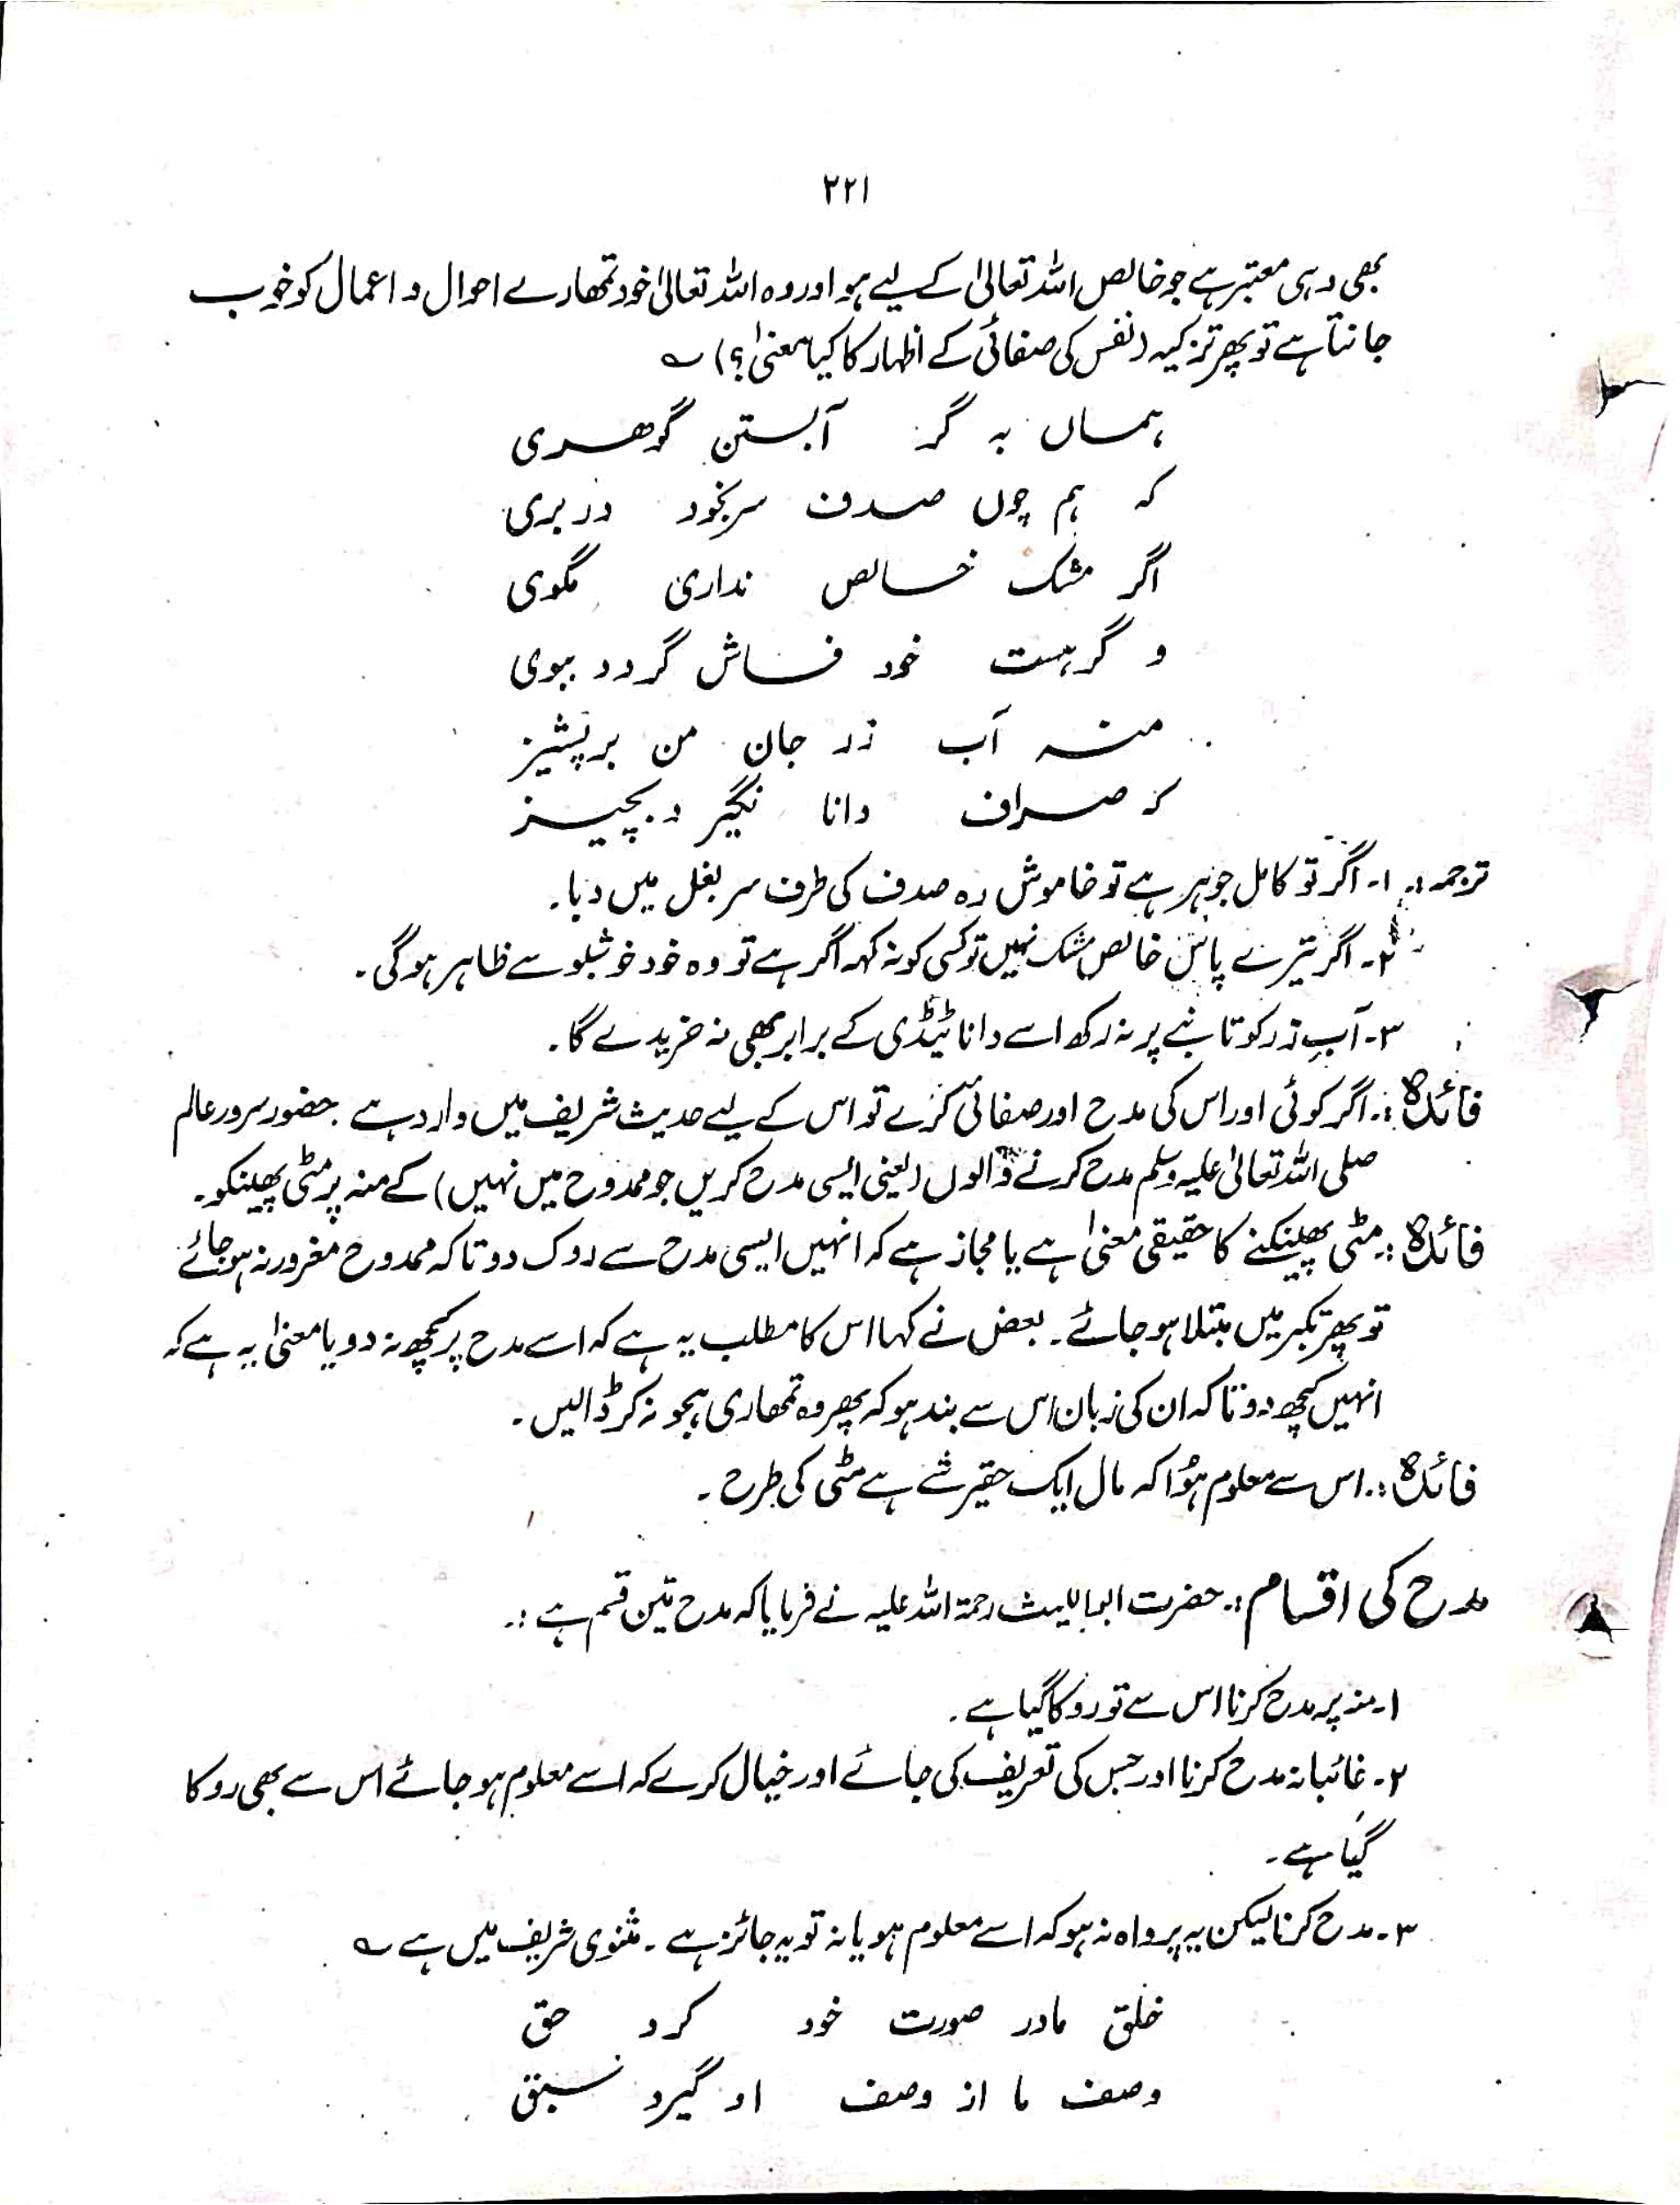 ۲۲۱
بھی وہی معتبر ہے جو خالص اللہ تعالیٰ کے لیے ہو اور وہ اللہ تعالیٰ خود تمھارے احوال و اعمال کو خوب
جانتا ہے تو پھر تزکیہ (نفس کی صفائی کے اظہار کا کیا معنیٰ؟) ؎
ہماں بہ گر آبستن گوھری
کہ ہم چوں صدف سر بخود در بری
اگر مشک خالص نداری مگوی
و گر ہست خود فاش گردد ببوی
منہ آب زر جان من بر پشیز
کہ صراف دانا نگیرد بچیز
ترجمہ :۔ ۱۔ اگر تو کامل جوہر ہے تو خاموش رہ صدف کی طرف سر بغل میں دبا۔
۲۔ اگر تیرے پاس خالص مشک نہیں تو کسی کو نہ کہہ اگر ہے تو وہ خود خوشبو سے ظاہر ہوگی۔
۳۔ آبِ زر کو تانبے پر نہ رکھ اسے دانا ٹیڈی کے برابر بھی نہ خریدے گا۔
فائدہ :۔ اگر کوئی اور اس کی مدح اور صفائی کرے تو اس کے لیے حدیث شریف میں وارد ہے۔ حضور سرور عالم
صلی اللہ تعالیٰ علیہ وسلم مدح کرنے والوں (یعنی ایسی مدح کریں جو ممدوح میں نہیں) کے منہ پر مٹی پھینکو۔
فائدہ :۔ مٹی پھینکنے کا حقیقی معنیٰ ہے یا مجاز ہے کہ انہیں ایسی مدح سے روک دو تاکہ ممدوح مغرور نہ ہو جائے
تو پھر تکبر میں مبتلا ہو جائے۔ بعض نے کہا اس کا مطلب یہ ہے کہ اسے مدح پر کچھ نہ دو یا معنیٰ یہ ہے کہ
انہیں کچھ دو تاکہ ان کی زبان اس سے بند ہو کہ پھر وہ تمھاری ہجو نہ کر ڈالیں۔
فائدہ :۔ اس سے معلوم ہوُا کہ مال ایک حقیر شے ہے مٹی کی طرح۔
مدح کی اقسام :۔ حضرت ابواللیث رحمۃ اللہ علیہ نے فرمایا کہ مدح تین قسم ہے :۔
۱۔ منہ پر مدح کرنا اس سے تو روکا گیا ہے۔
۲۔ غائبانہ مدح کرنا اور جس کی تعریف کی جائے اور خیال کرے کہ اسے معلوم ہو جائے اس سے بھی روکا
گیا ہے۔
۳۔ مدح کرنا لیکن یہ پرواہ نہ ہو کہ اسے معلوم ہو یا نہ تو یہ جائز ہے۔ مثنوی شریف میں ہے ؎
خلق مادر صورت خود کرد حق
وصف ما از وصف او گیرد سبق